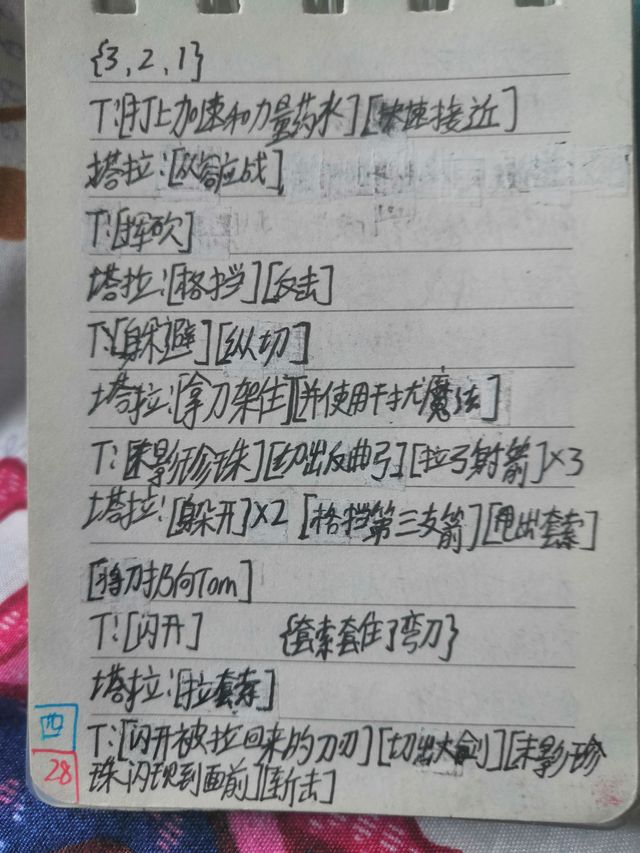 {3,2,1}
T:[打上加速和力量药水][快速接近]
塔拉:[从容应战]
T:[挥砍]
塔拉:[格挡][反击]
T:[躲避][纵切]
塔拉:[拿刀架住][并使用干扰魔法]
T:[末影珍珠][切出反曲弓][拉弓射箭]×3
塔拉:[躲开]×2 [格挡第三支箭][甩出套索]
[将刀扔向Tom]
T:[闪开] {套索套住了弯刀}
塔拉:[拉套索]
T:[闪开被拉回来的刀刃][切出大剑][末影珍
珠闪现到面前][斩击]
四
28